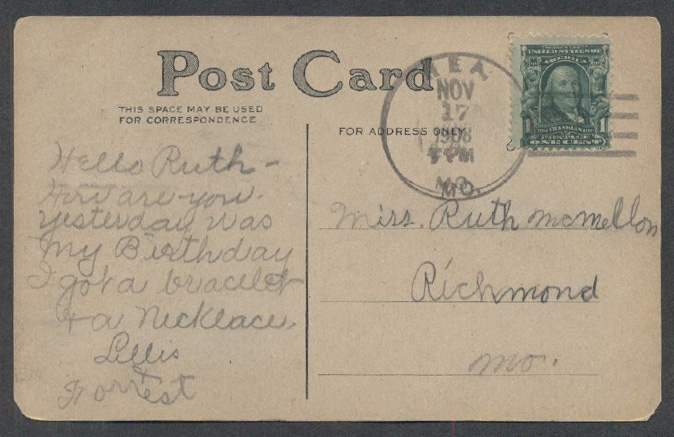 Post Card
THIS SPACE MAY BE USED
FOR CORRESPONDENCE
FOR ADDRESS ONLY
NOV
17
1908
PM
MO.
UNITED STATES OF
AMERICA
FRANKLIN
POSTAGE
1 ONE CENT 1
Hello Ruth -
How are you.
yesterday was
my Birthday
I got a bracelet
& a Necklace.
Lillis
Forrest
Miss. Ruth McMellon
Richmond
Mo.